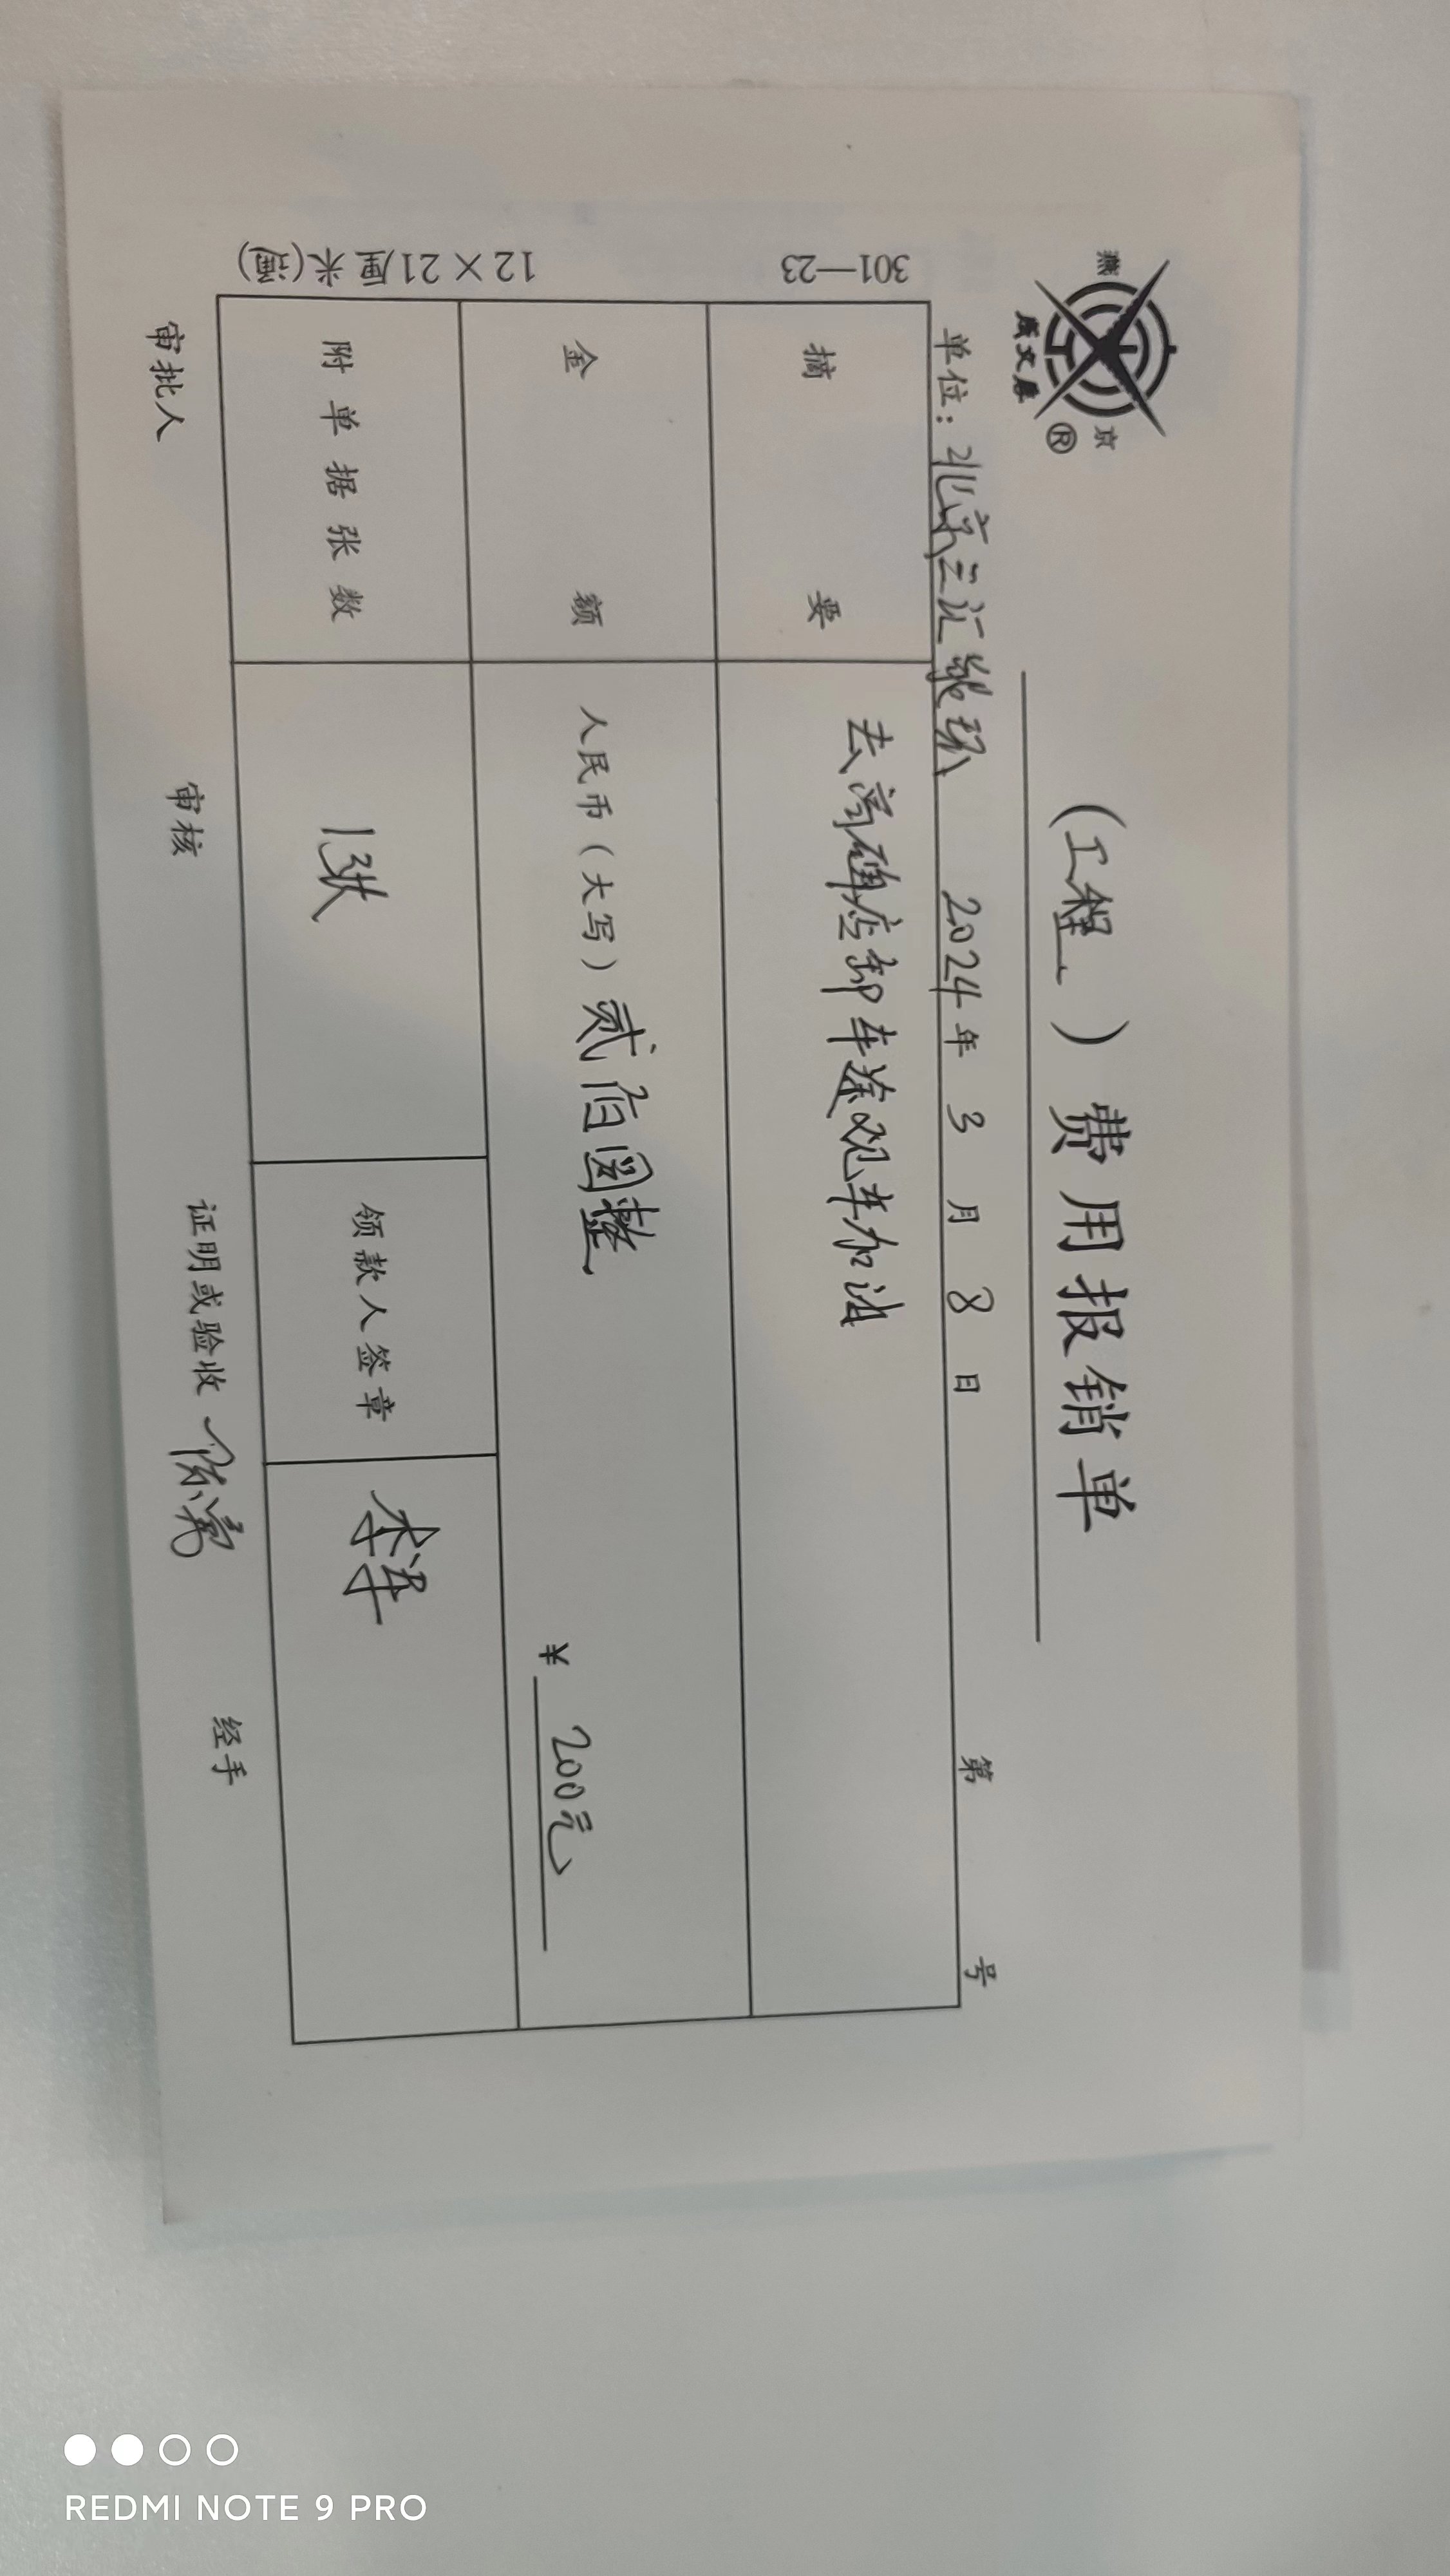 燕 京
成文厚
®
(工程)费用报销单
单位:北京三汇能环 2024年3月8日 第 号
摘要 去高碑店卸车途观车加油
金额 人民币(大写)贰佰圆整
¥ 200元
附单据张数 1张 领款人签章
审批人 审核 证明或验收 经手
301—23
12×21厘米(通)
REDMI NOTE 9 PRO